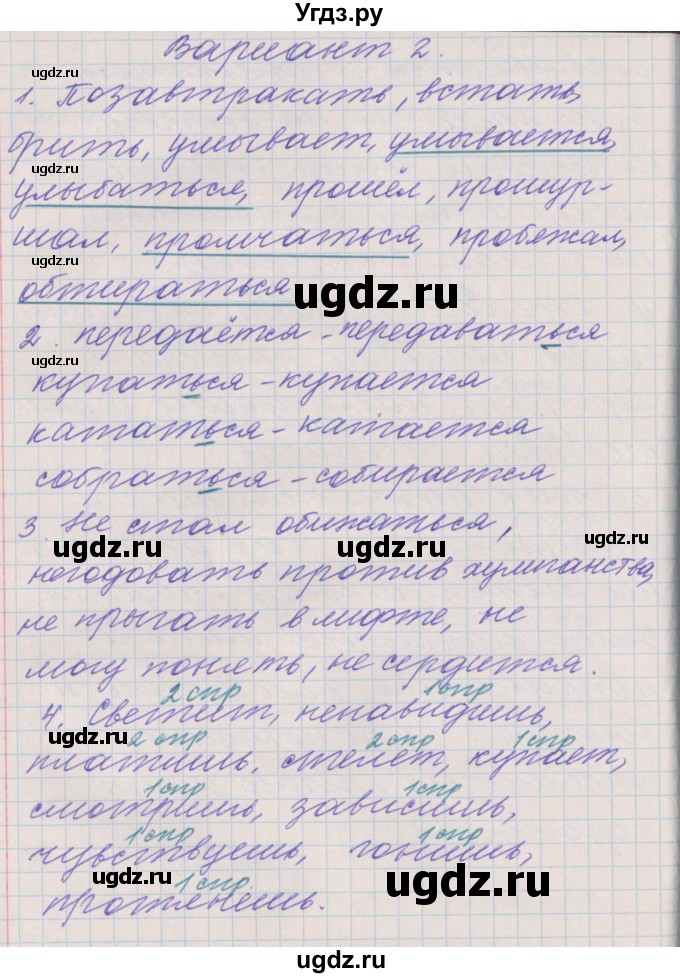 Угдз.ру
Вариант 2.
ugdz.ru
1. Позавтракать, встать,
брить, умывает, умывается,
ugdz.ru
улыбаться, прошёл, прошур-
шал, промчаться, пробежал,
ugdz.ru
обтираться ugdz.ru
2. передаётся - передаваться
ugdz.ru
купаться - купается
кататься - катается
собраться - собирается
3 Не стал обижаться,
ugdz.ru ugdz.ru ugdz.ru
негодовать против хулиганства,
не прыгать в лифте, не
могу понять, не сердится.
2 спр 1 спр
4. Светит, ненавидишь,
ugdz.ru 2 спр 2 спр 1 спр
платишь, стелет, купает,
1 спр 1 спр
смотришь, зависишь,
1 спр 1 спр
чувствуешь, гонишь,
ugdz.ru 1 спр. ugdz.ru
протянешь.
ugdz.ru